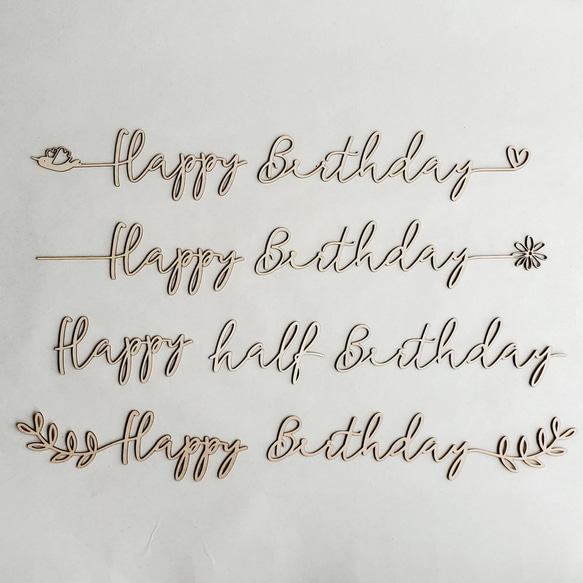 Happy Birthday
Happy Birthday
Happy half Birthday
Happy Birthday